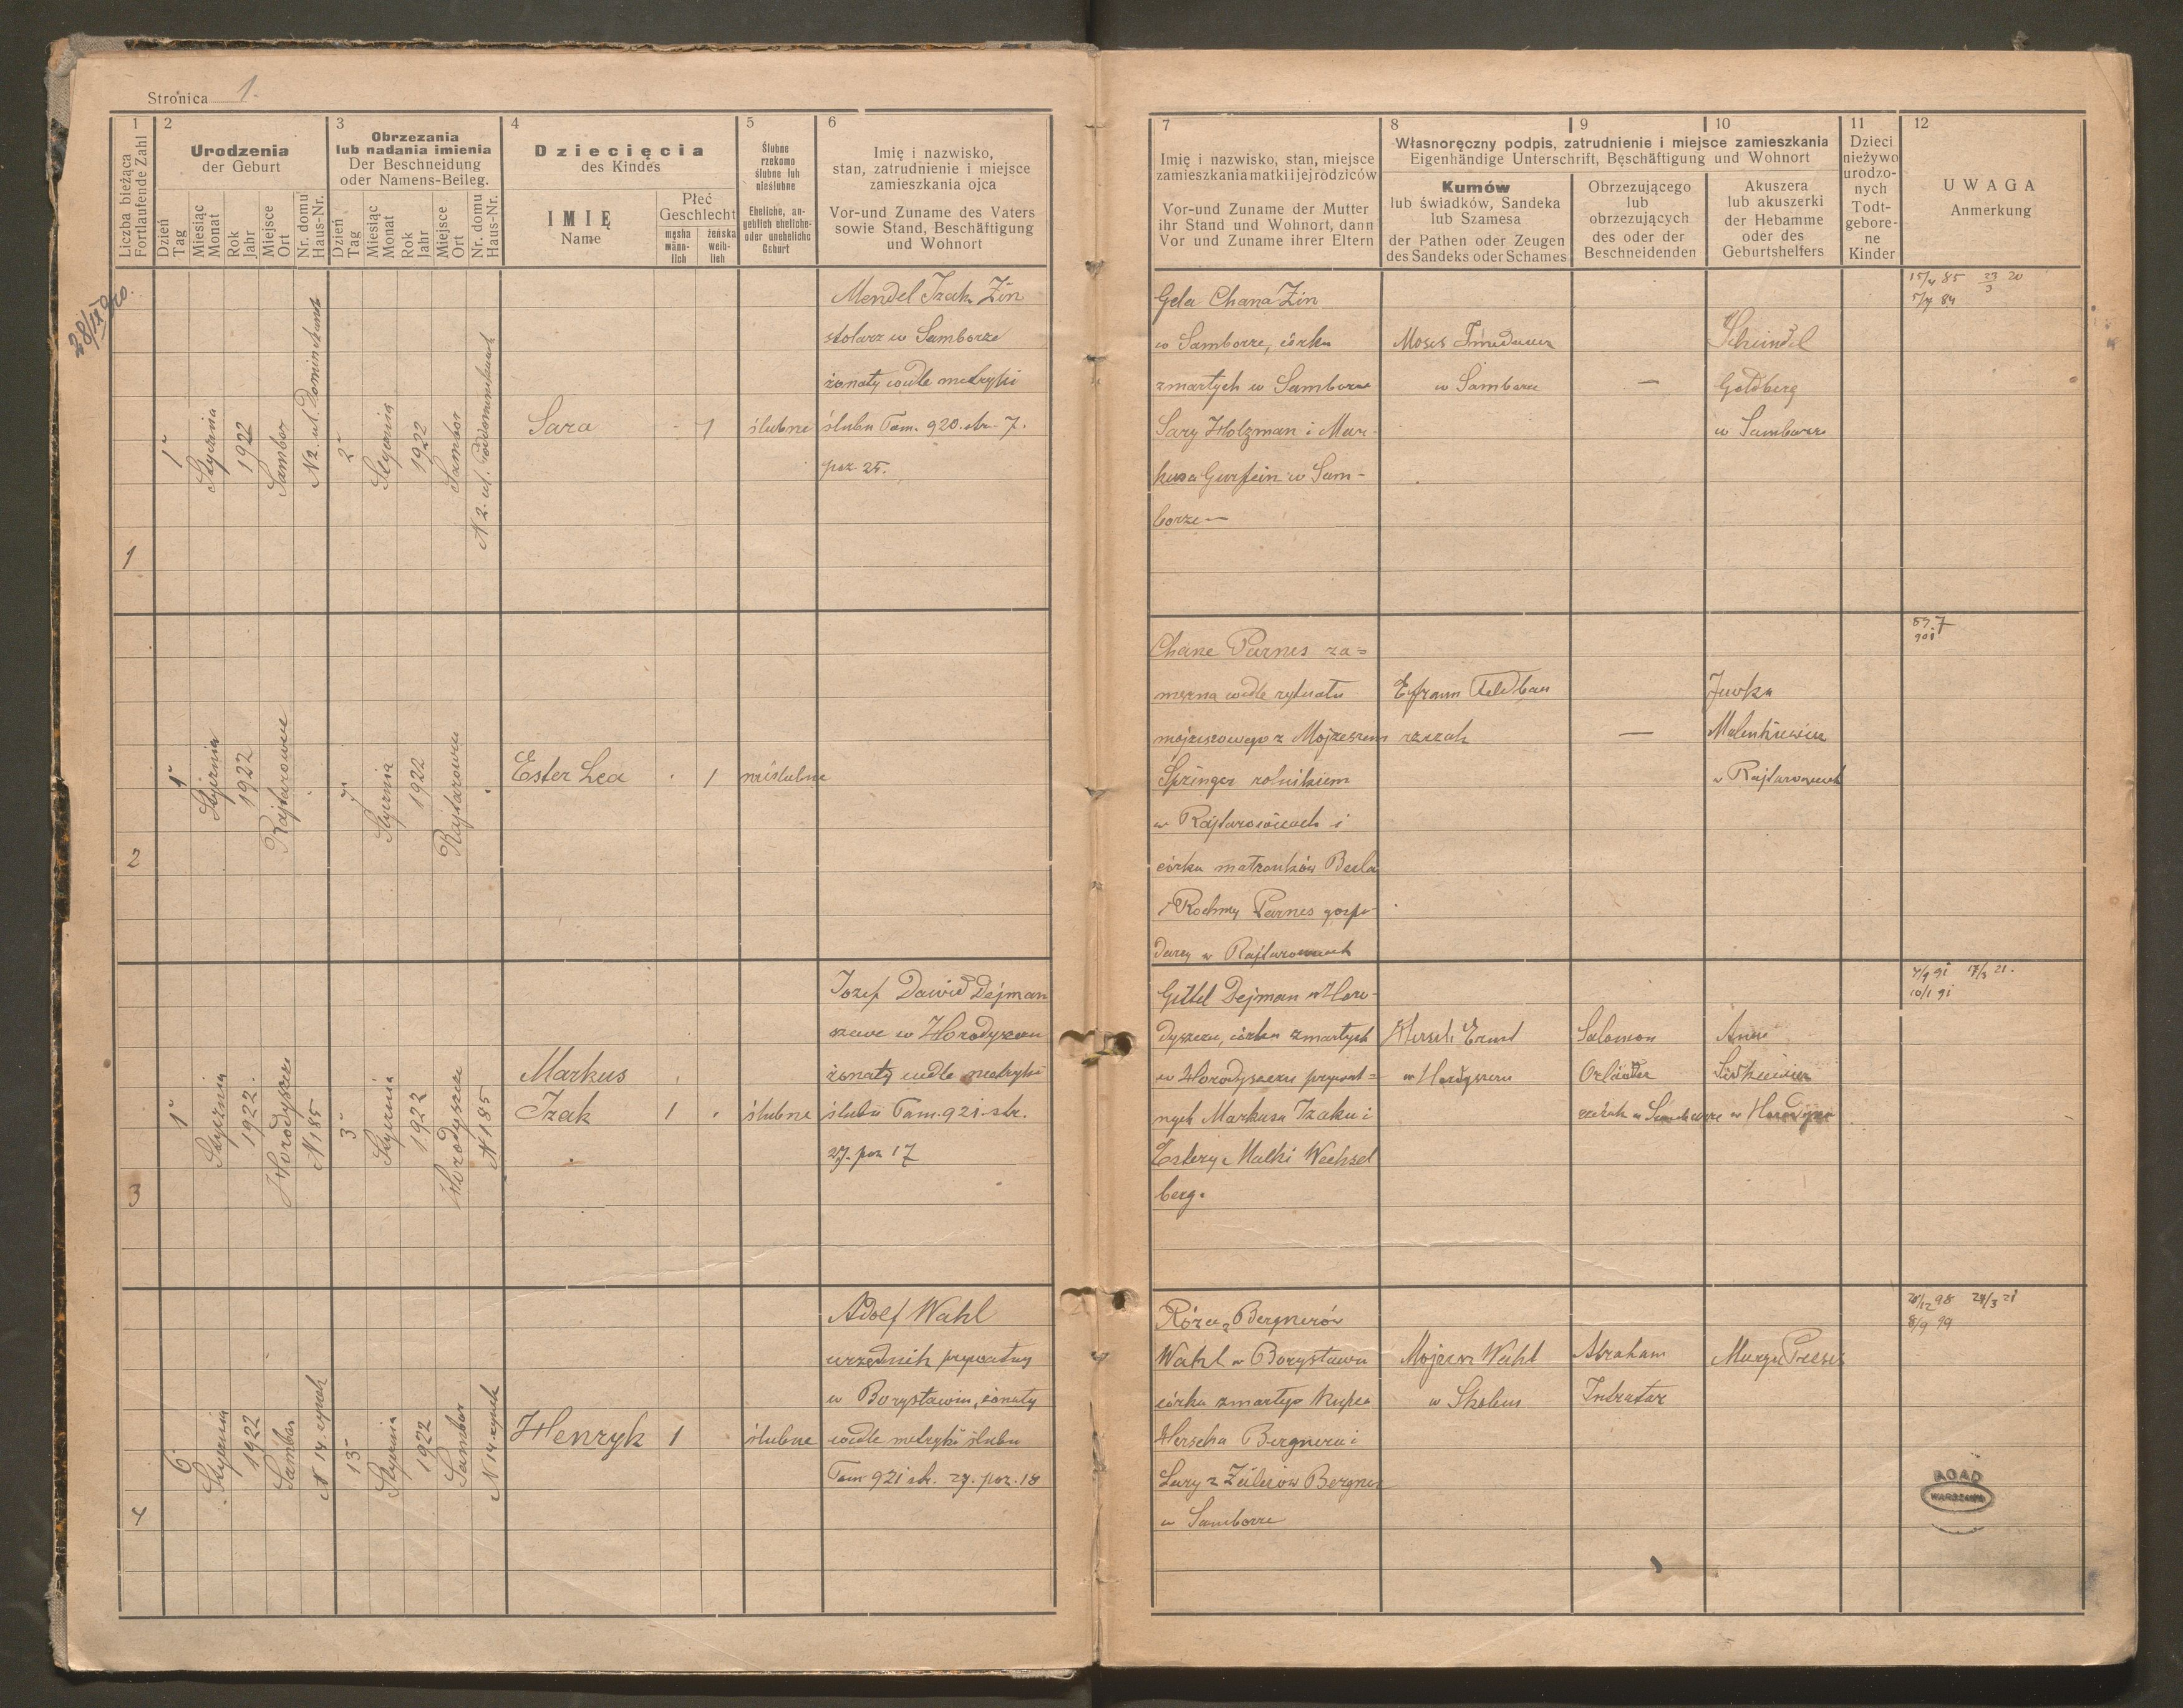 Stronica 1.
1
Liczba bieżąca
Fortlaufende Zahl
2
Urodzenia
der Geburt
Dzień
Tag
Miesiąc
Monat
Rok
Jahr
Miejsce
Ort
Nr. domu
Haus-Nr.
3
Obrzezania
lub nadania imienia
Der Beschneidung
oder Namens-Beileg.
Dzień
Tag
Miesiąc
Monat
Rok
Jahr
Miejsce
Ort
Nr. domu
Haus-Nr.
4
Dziecięcia
des Kindes
IMIĘ
Name
Płeć
Geschlecht
męska
männ-
lich
żeńska
weib-
lich
5
Ślubne
rzekomo
ślubne lub
nieślubne
Eheliche, an-
geblich eheliche-
oder uneheliche
Geburt
6
Imię i nazwisko,
stan, zatrudnienie i miejsce
zamieszkania ojca
Vor-und Zuname des Vaters
sowie Stand, Beschäftigung
und Wohnort
7
Imię i nazwisko, stan, miejsce
zamieszkania matki i jej rodziców
Vor-und Zuname der Mutter
ihr Stand und Wohnort, dann
Vor und Zuname ihrer Eltern
8
9
10
Własnoręczny podpis, zatrudnienie i miejsce zamieszkania
Eigenhändige Unterschrift, Beschäftigung und Wohnort
Kumów
lub świadków, Sandeka
lub Szamesa
der Pathen oder Zeugen
des Sandeks oder Schames
Obrzezującego
lub
obrzezujących
des oder der
Beschneidenden
Akuszera
lub akuszerki
der Hebamme
oder des
Geburtshelfers
11
Dzieci
nieżywo
urodzo-
nych
Todt-
gebore-
ne
Kinder
12
UWAGA
Anmerkung
1
1
Stycznia
1922
Sambor
N 2. ul.
2
Stycznia
1922
Sambor
N 2. ul.
Sara
1
ślubne
Mendel Izak Zin
stolarz w Samborze
żonaty wedle metryki
ślubu Tom. 920. str. 7.
poz 25.
Gela Chana Zin
w Samborze, córka
zmarłych w Samborze
Sary Holzman i Mar-
kusa Gurfein w Sam-
borze
Moses
w Samborze
—
Scheindel
Goldberg
w Samborze
15/4 85 23/3 20
84
2
1
Stycznia
1922
7
Stycznia
1922
Ester Lea
1
nieślubne
Chane Parnes za-
mężna wedle rytuału
mojżeszowego z Mojżeszem
Springer rolnikiem
w Rajtarowicach i
córka małżonków Beila
i Rochmy Parnes gospo-
darzy w Rajtarowicach
Efraim Feldbau
rzezak
—
w Rajtarowicach
3
1
Stycznia
1922.
Horodyszcze
N 185
3
Stycznia
1922
Horodyszcze
N 185
Markus
Izak
1
ślubne
Jozef Dawid Dejman
szewc w Horodyszczu
żonaty wedle metryki
ślubu Tom. 921. str.
27. poz 17
Gittel Dejman w Horo-
dyszczu, córka zmarłych
w Horodyszczu prywat-
nych Markusa Izaka i
Estery Malki Wechsel
berg.
Hersch Ernst
Salomon
Orlander
rzezak w Samborze
Anna
7/9 91 17/3 21.
10/1 91
4
6
Stycznia
1922
Sambor
N 14. rynek
13
Stycznia
1922
Sambor
N 14 rynek
Henryk
1
ślubne
Adolf Wahl
urzędnik prywatny
w Borysławiu, żonaty
wedle metryki ślubu
Tom 921 str. 27. poz. 18
Róża z Bergnerów
Wahl w Borysławiu
córka zmarłego kupca
Herscha Bergnera i
Sary z Bergner
w Samborze
Mojżesz Wahl
w Skolem
Abraham
Intrater
20/12 98 24/3 21
8/9 99
AGAD
WARSZAWA